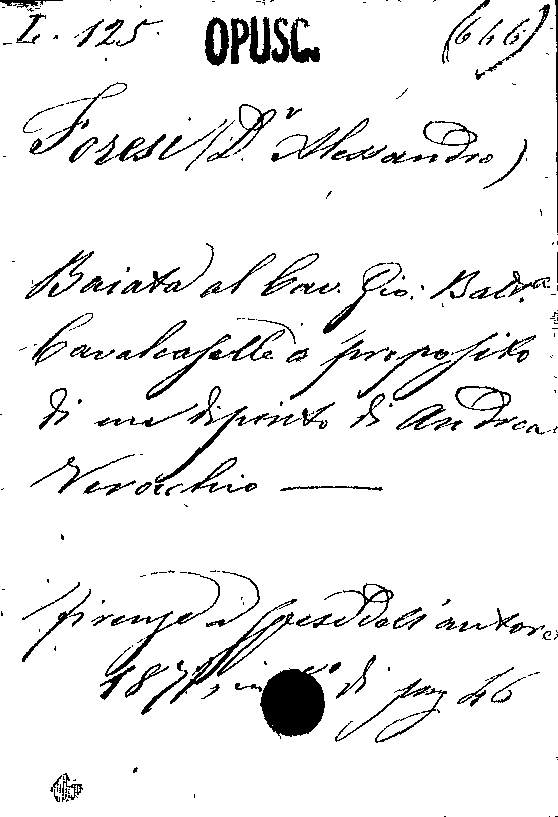 I. 125. OPUSC. (646)
Foresi (D.r Alessandro)
Baiata al Cav. Gio: Batt.a
Cavalcaselle a proposito
di un dipinto di Andrea
Verocchio —
Firenze a spese dell'autore
187 in di pag 46